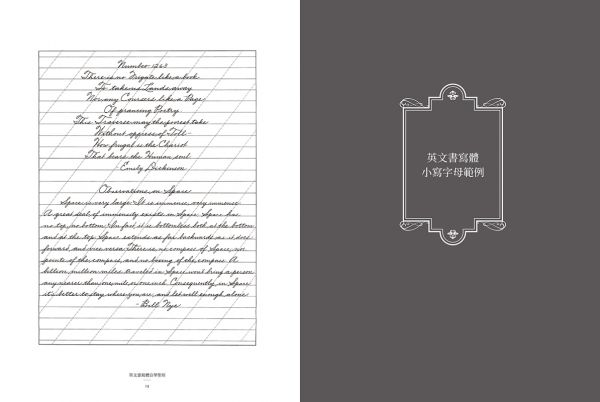 Number 1263
There is no Frigate like a book
To take us Lands away
Nor any Coursers like a Page
Of prancing Poetry
This Traverse may the poorest take
Without oppress of Toll
How frugal is the Chariot
That bears the Human soul
- Emily Dickinson
Observations on Space
Space is very large. It is immense, very immense.
A great deal of immensity exists in Space. Space has
no top, no bottom. In fact, it is bottomless both at the bottom
and at the top. Space extends as far backwards as it does
forward, and vice versa. There is no compass of Space, nor
points of the compass, and no boxing of the compass. A
billion million miles traveled in Space won't bring a person
any nearer than one mile or one inch. Consequently, in Space
it's better to stay where you are, and let well enough alone.
- Bill Nye
英文書寫體自學聖經
英文書寫體
小寫字母範例